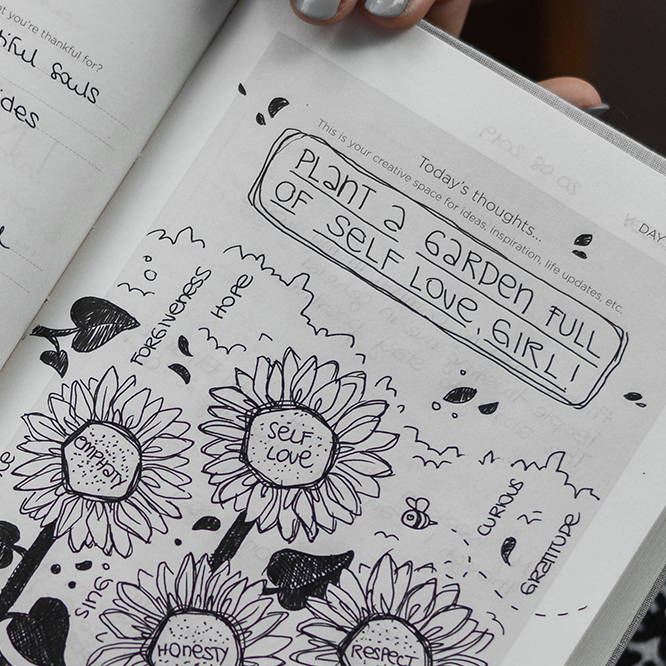 at you're thankful for?
tiful souls
ides
DAY
Today's thoughts...
This is your creative space for ideas, inspiration, life updates, etc.
PLANT A GARDEN FULL
OF SELF LOVE, GIRL!
FORGIVENESS
HOPE
EMPHATY
SELF
LOVE
CURIOUS
GRATITUDE
SING
HONESTY
RESPECT